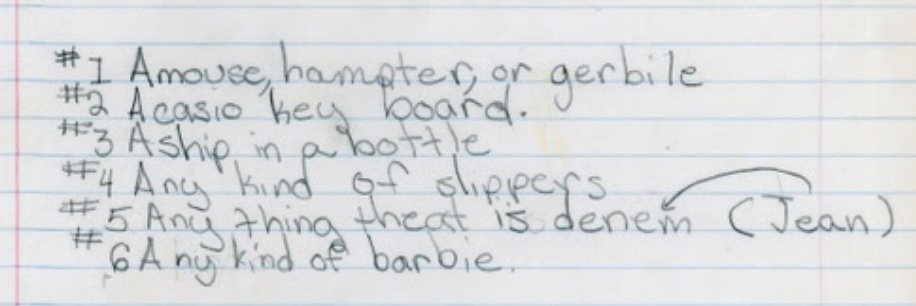 #1 A mouse, hampter, or gerbile
#2 A casio key board.
#3 A ship in a bottle
#4 Any kind of slippers
#5 Any thing theat is denem (Jean)
#6 Any kind of barbie.